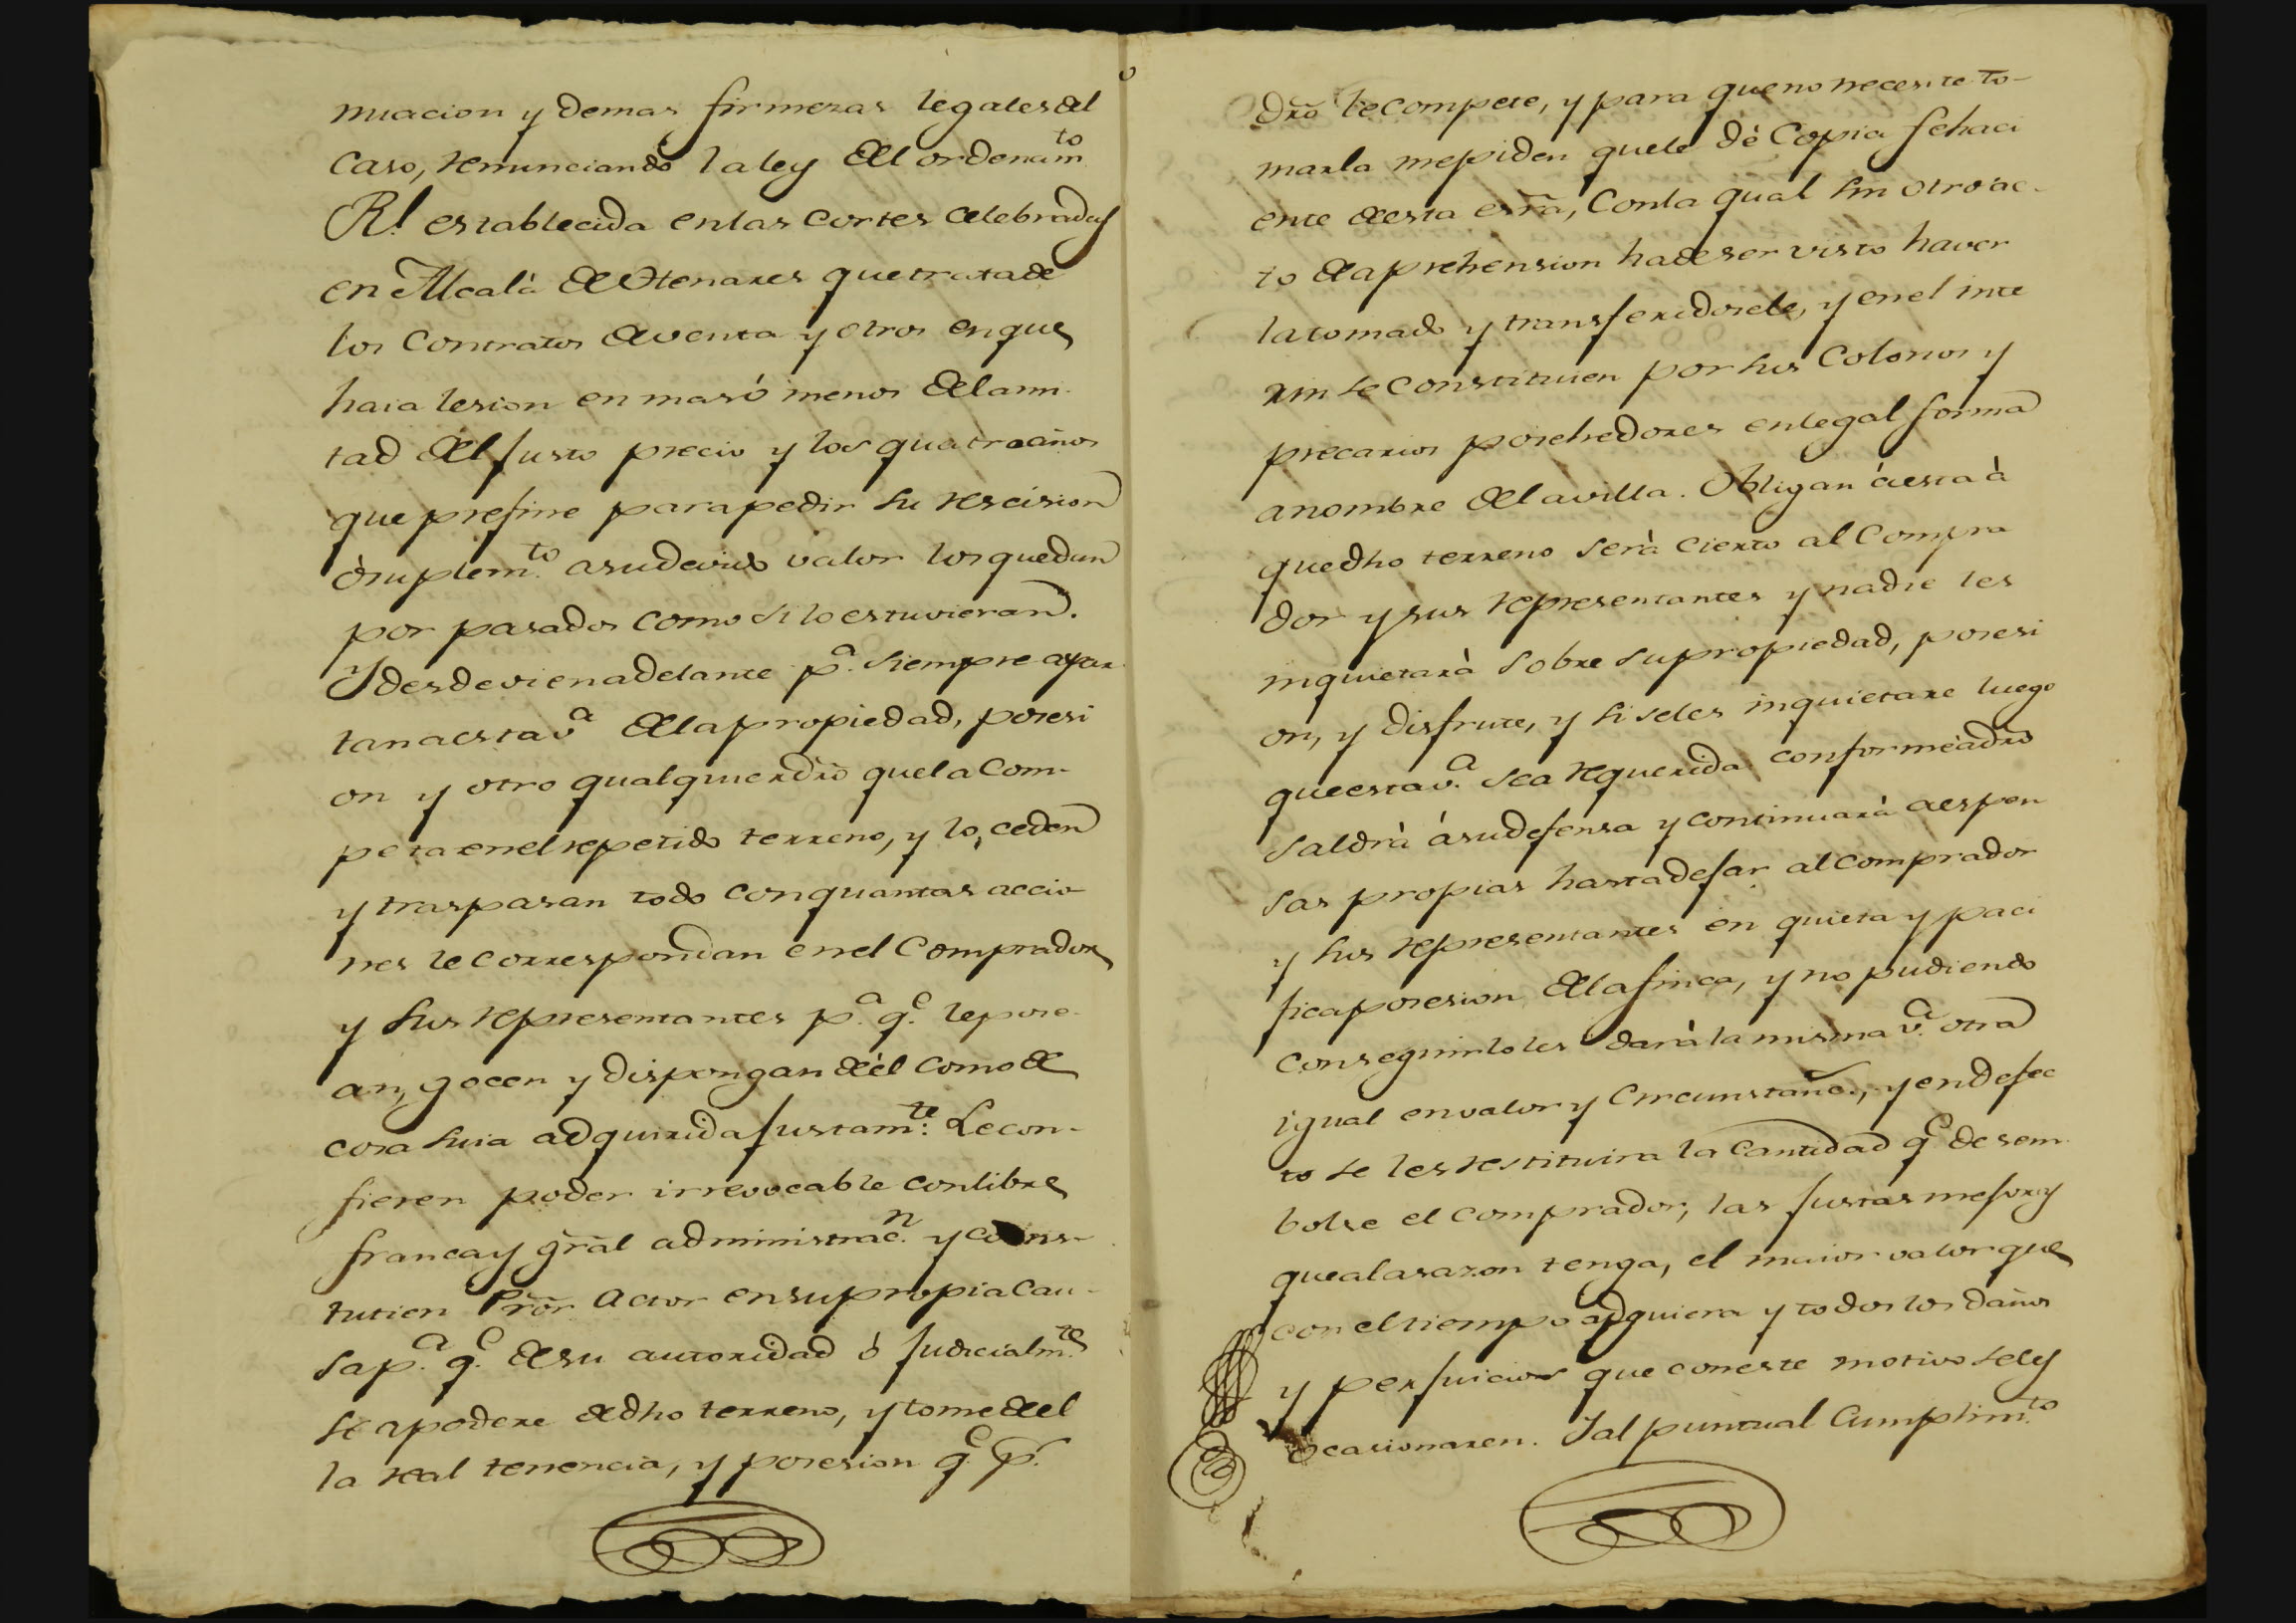 nuacion y demas firmezas legales del
caso, renunciando la ley del ordenam.to
Rl. establecida en las Cortes celebradas
en Alcalà de Henares que trata de
los Contratos de venta y otros en que
haia lesion en mas ó menos de la mi-
tad del justo precio y los quatro años
que prefine para pedir su rescision
ò suplem.to a su devido valor los que dan
por pasados como si lo estuvieran.
Y desde oi en adelante p.a siempre apar-
tan a esta v.a de la propiedad, posesi
on y otro qualquier dro que la com-
peta en el repetido terreno, y lo ceden
y traspasan todo con quantas accio-
nes le correspondan en el Comprador
y sus representantes p.a q.e le pose-
an, gocen y dispongan de èl como de
cosa suia adquirida justam.te: Le con-
fieren poder irrevocable con libre
franca y gral administrac.n y cons-
tutien Pror Actor en su propia cau-
sa p.a q.e de su autoridad ó judicialm.te
se apodere de dho terreno, y tome de el
la real tenencia, y posesion q.e p.r
dro le compete, y para que no necesite to-
marla me piden que le dè Copia fehaci
ente de esta esra, Con la qual sin otro ac-
to de aprehension ha de ser visto haver
la tomado y transferidosele, y en el inte
rin se constituien por sus Colonos y
precarios posehedores en legal forma
a nombre de la villa. Obligan á esta à
que dho terreno serà cierto al Compra
dor y sus representantes y nadie les
inquietarà sobre su propiedad, posesi
on, y disfrute, y si se les inquietare luego
que esta v.a sea requerida conforme à dro
saldrà á su defensa y continuarà a espen
sas propias hasta dejar al comprador
y sus representantes en quieta y paci
fica posesion de la finca, y no pudiendo
conseguirlo les darà la misma v.a otra
igual en valor y circunstanc.s, y en defec
to se les restituira la cantidad q.e desem-
bolse el comprador, las justas mejoras
que a la sazon tenga, el maior valor que
con el tiempo adquiera y todos los daños
y perjuicios que con este motivo se les
ocasionaren. Y al puntual Cumplim.to